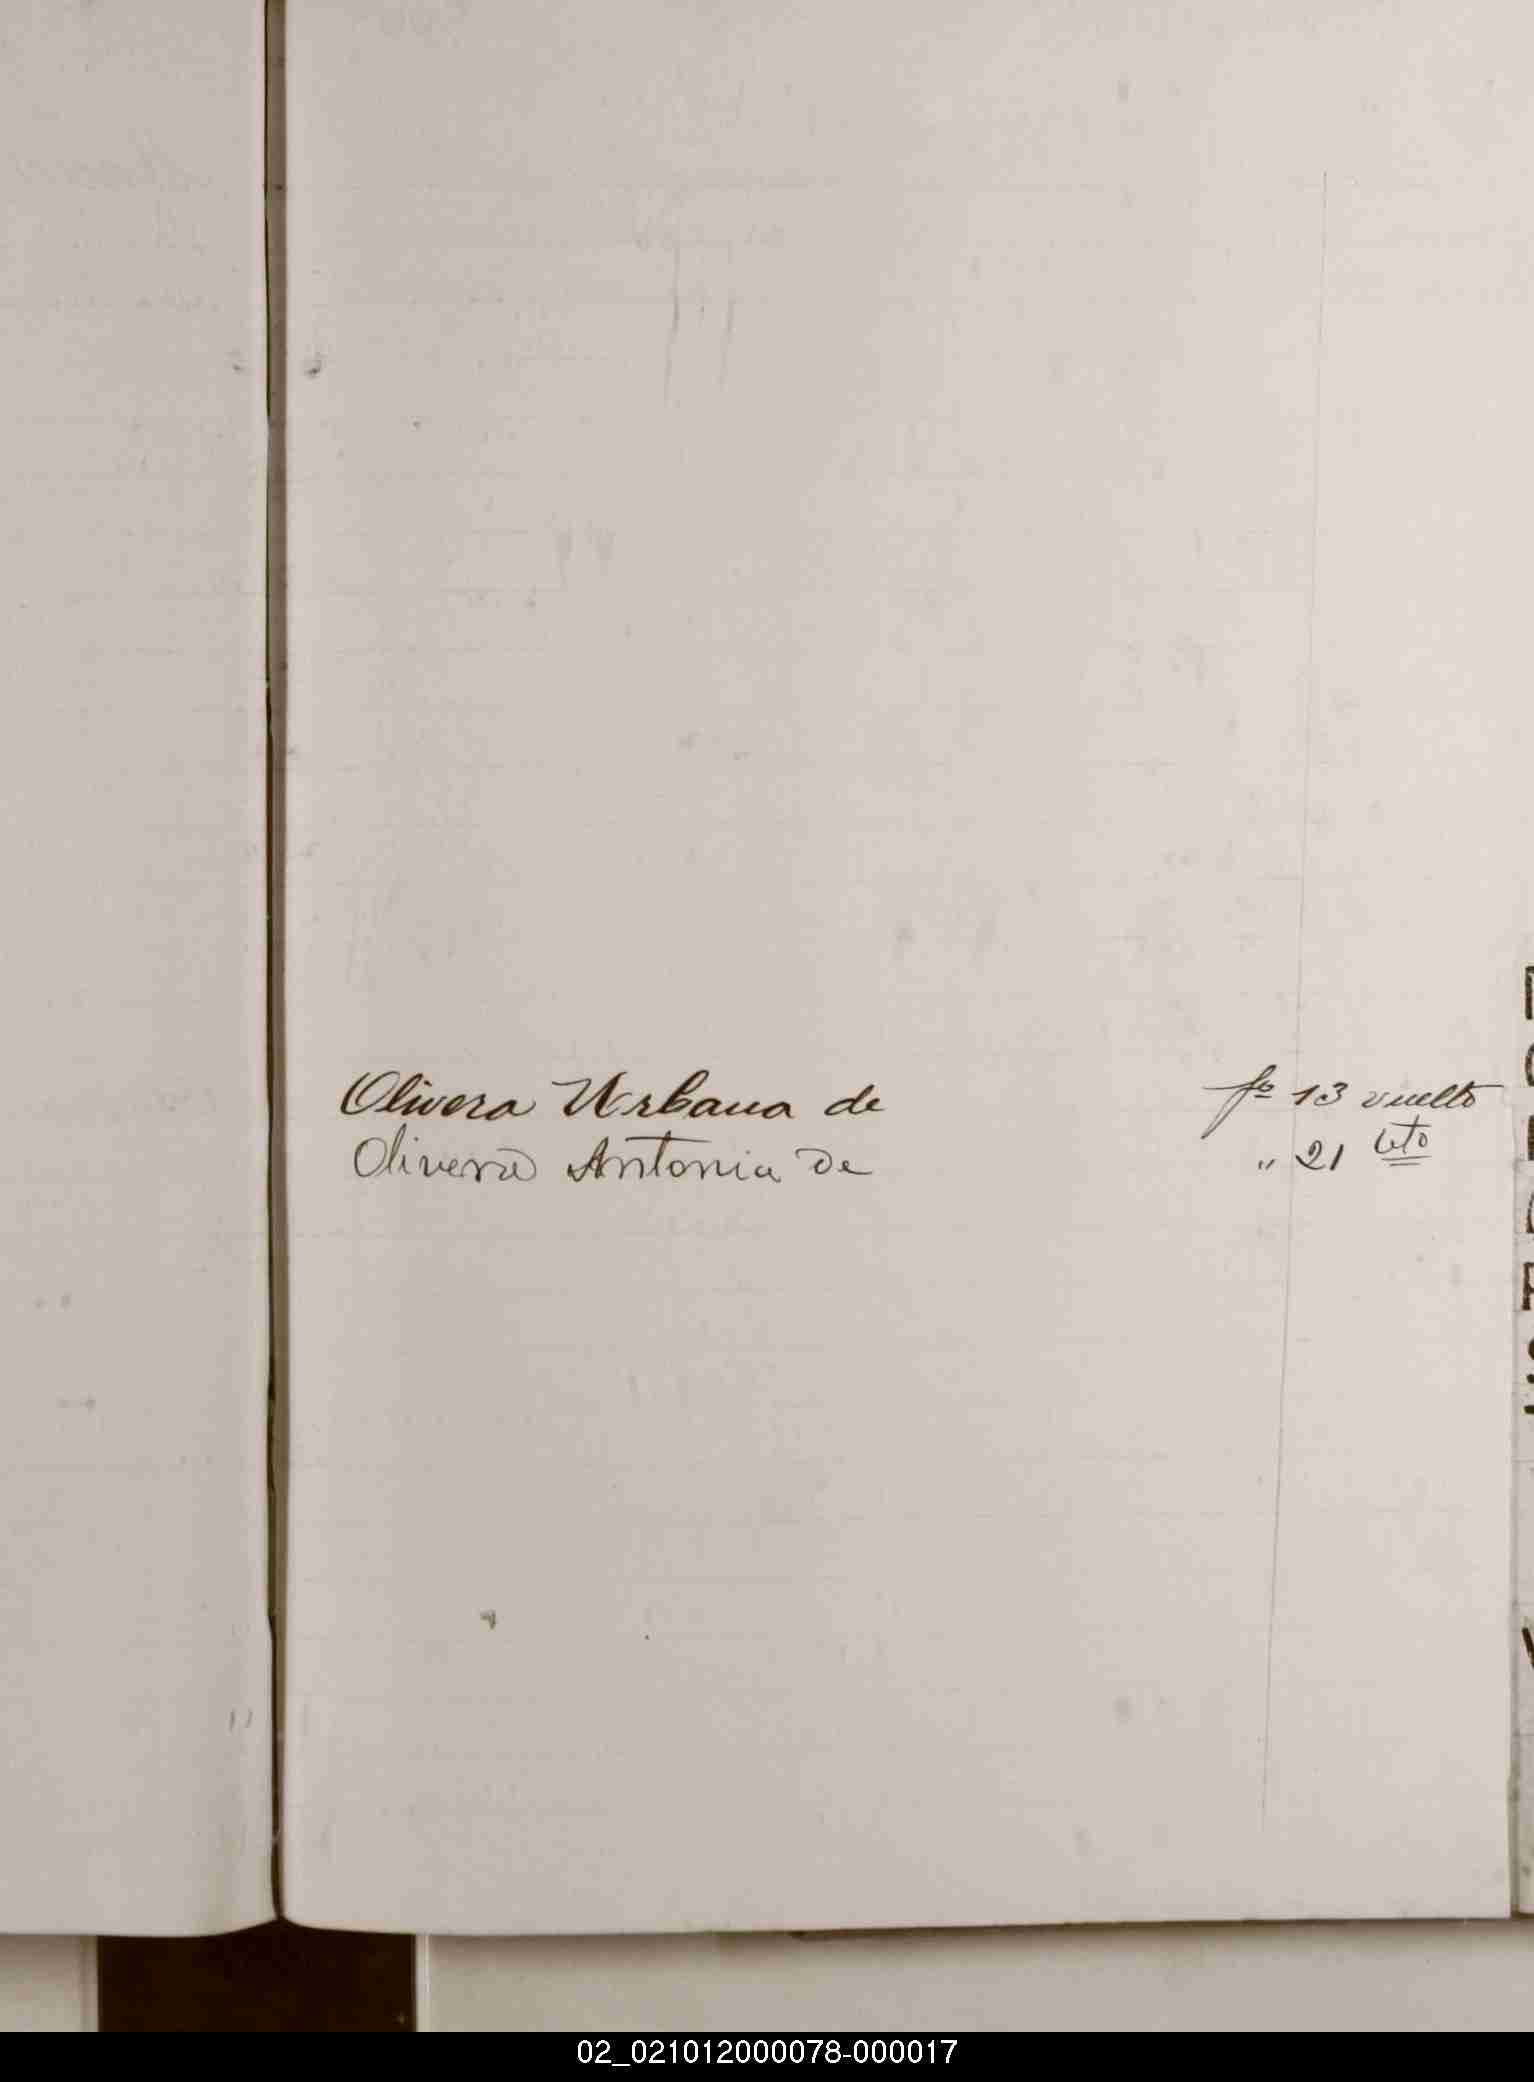 Olivera Urbana de fº 13 vuelto
Olivera Antonia de " 21 vto
02_021012000078-000017